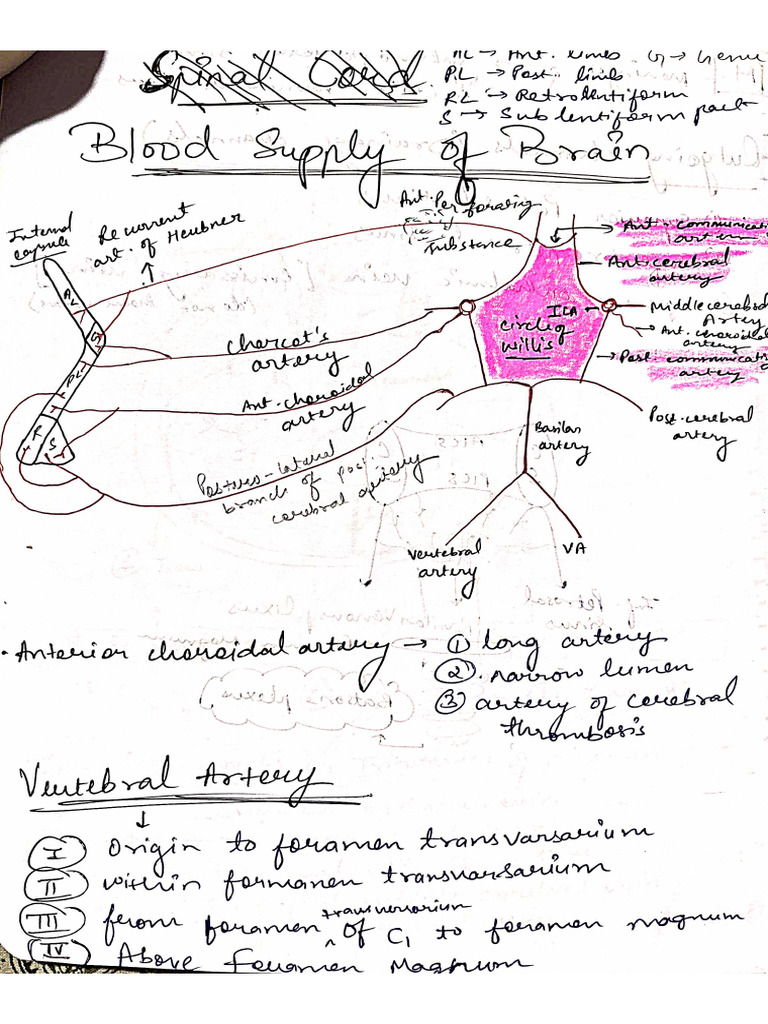 Spinal Cord
AL → Ant. limb G → Genu
PL → Post. limb
RL → Retrolentiform
S → Sublentiform part
Blood Supply of Brain
Internal
capsule
Recurrent
art. of Heubner
Ant. Perforating
substance
Ant. communicati
Ant. cerebral
artery
AL
G
PL
R
S
ICA
circle of
willis
Middle cerebral
Artery
Ant. choroidal
artery
Post. communicati
artery
Charcot's
artery
Ant. choroidal
artery
Postero-lateral
branch of post.
cerebral artery
Basilar
artery
Post. cerebral
artery
Vertebral
artery
VA
. Anterior choroidal artery → ① long artery
②. narrow lumen
③ artery of cerebral
thrombosis
Vertebral Artery
↓
I Origin to foramen transvarsarium
II within formanen transvarsarium
III from foramen transversarium of C1 to foramen magnum
IV Above Foramen Magnum